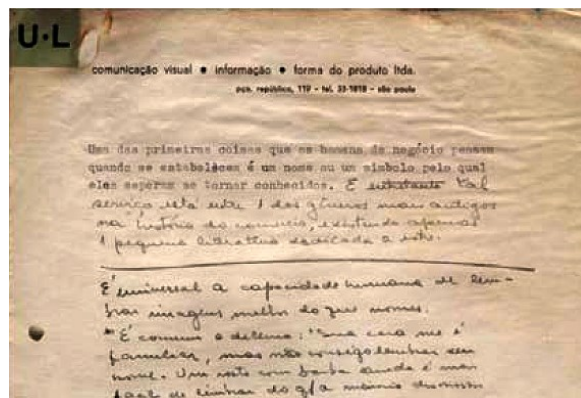 U·L
comunicação visual • informação • forma do produto ltda.
pça. república, 119 - tel. 33-1818 - são paulo
Uma das primeiras coisas que os homens de negócio pensam
quando se estabelecem é um nome ou um símbolo pelo qual
eles esperam se tornar conhecidos. E entretanto tal
serviço está entre 1 dos gêneros mais antigos
na história do comércio, existindo apenas
1 pequena literatura dedicada a este.
É universal a capacidade humana de lem-
brar imagens melhor do que nomes.
É comum o dilema: "Sua cara me é
familiar, mas não consigo lembrar seu
nome. Um rosto com barba é mais
fácil de lembrar do q/ a maioria dos nossos